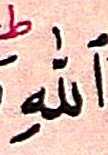 ٱللَّهِ ط